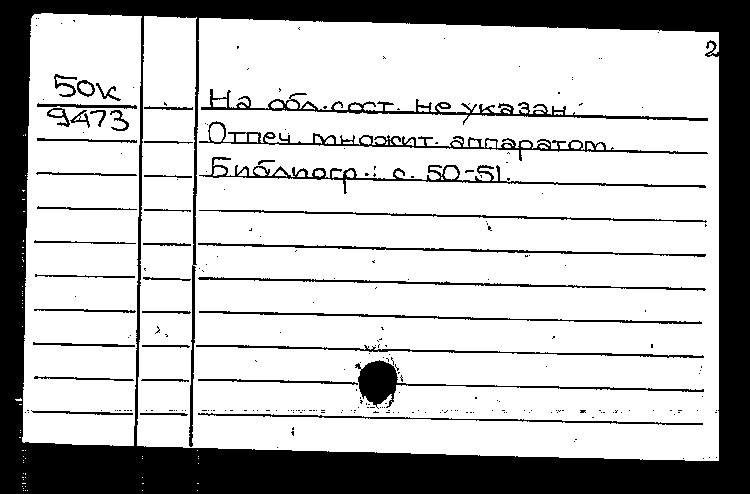 2
50к
9473
На обл. сост. не указан.
Отпеч. множит. аппаратом.
Библиогр.: с. 50-51.